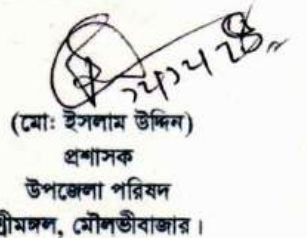 (মোঃ ইসলাম উদ্দিন)
প্রশাসক
উপজেলা পরিষদ
শ্রীমঙ্গল, মৌলভীবাজার।